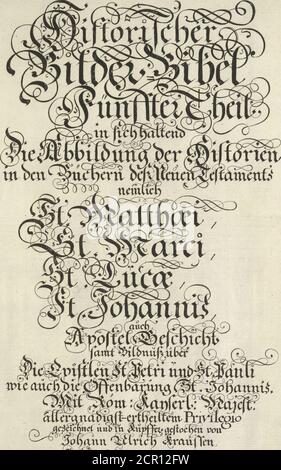 Historischer
Bilder-Bibel
Funffter Theil
in sich haltend
Die Abbildung der Historien
in den Büchern deß Neuen Testaments
nemlich
St. Matthæi,
St. Marci,
St. Lucæ,
St. Johannis,
auch
Apostel-Geschicht
samt Bildnüß über
Die Epistlen St. Petri und St. Pauli
wie auch die Offenbarung St. Johannis.
Mit Röm: Kayserl: Majest:
allergnädigst ertheiltem Privilegio
gezeichnet und in Kupffer gestochen von
Johann Ulrich Kraussen
alamy
2CR12FW